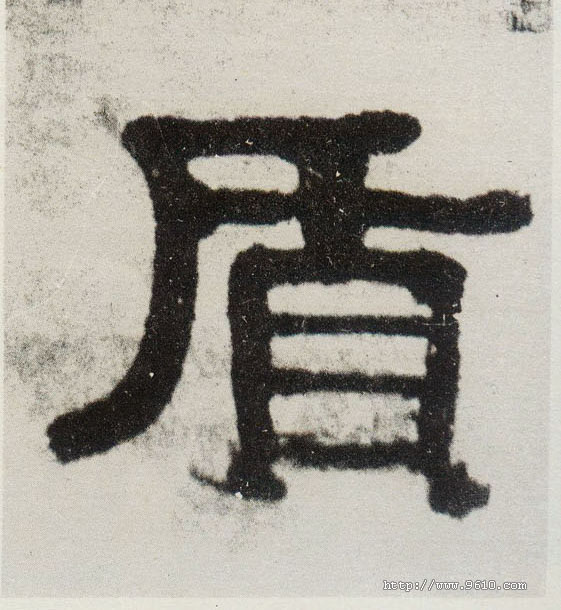 盾
http://www.9610.com